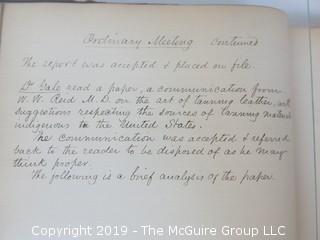 Ordinary Meeting continued
The report was accepted & placed on file.
Dr Gale read a paper, a communication from
W. W. Reid M.D. on the art of tanning leather, with
suggestions respecting the sources of tanning material
indigenous to the United States.
The communication was accepted & referred
back to the reader to be disposed of as he may
think proper.
The following is a brief analysis of the paper.
Copyright 2019 - The McGuire Group LLC